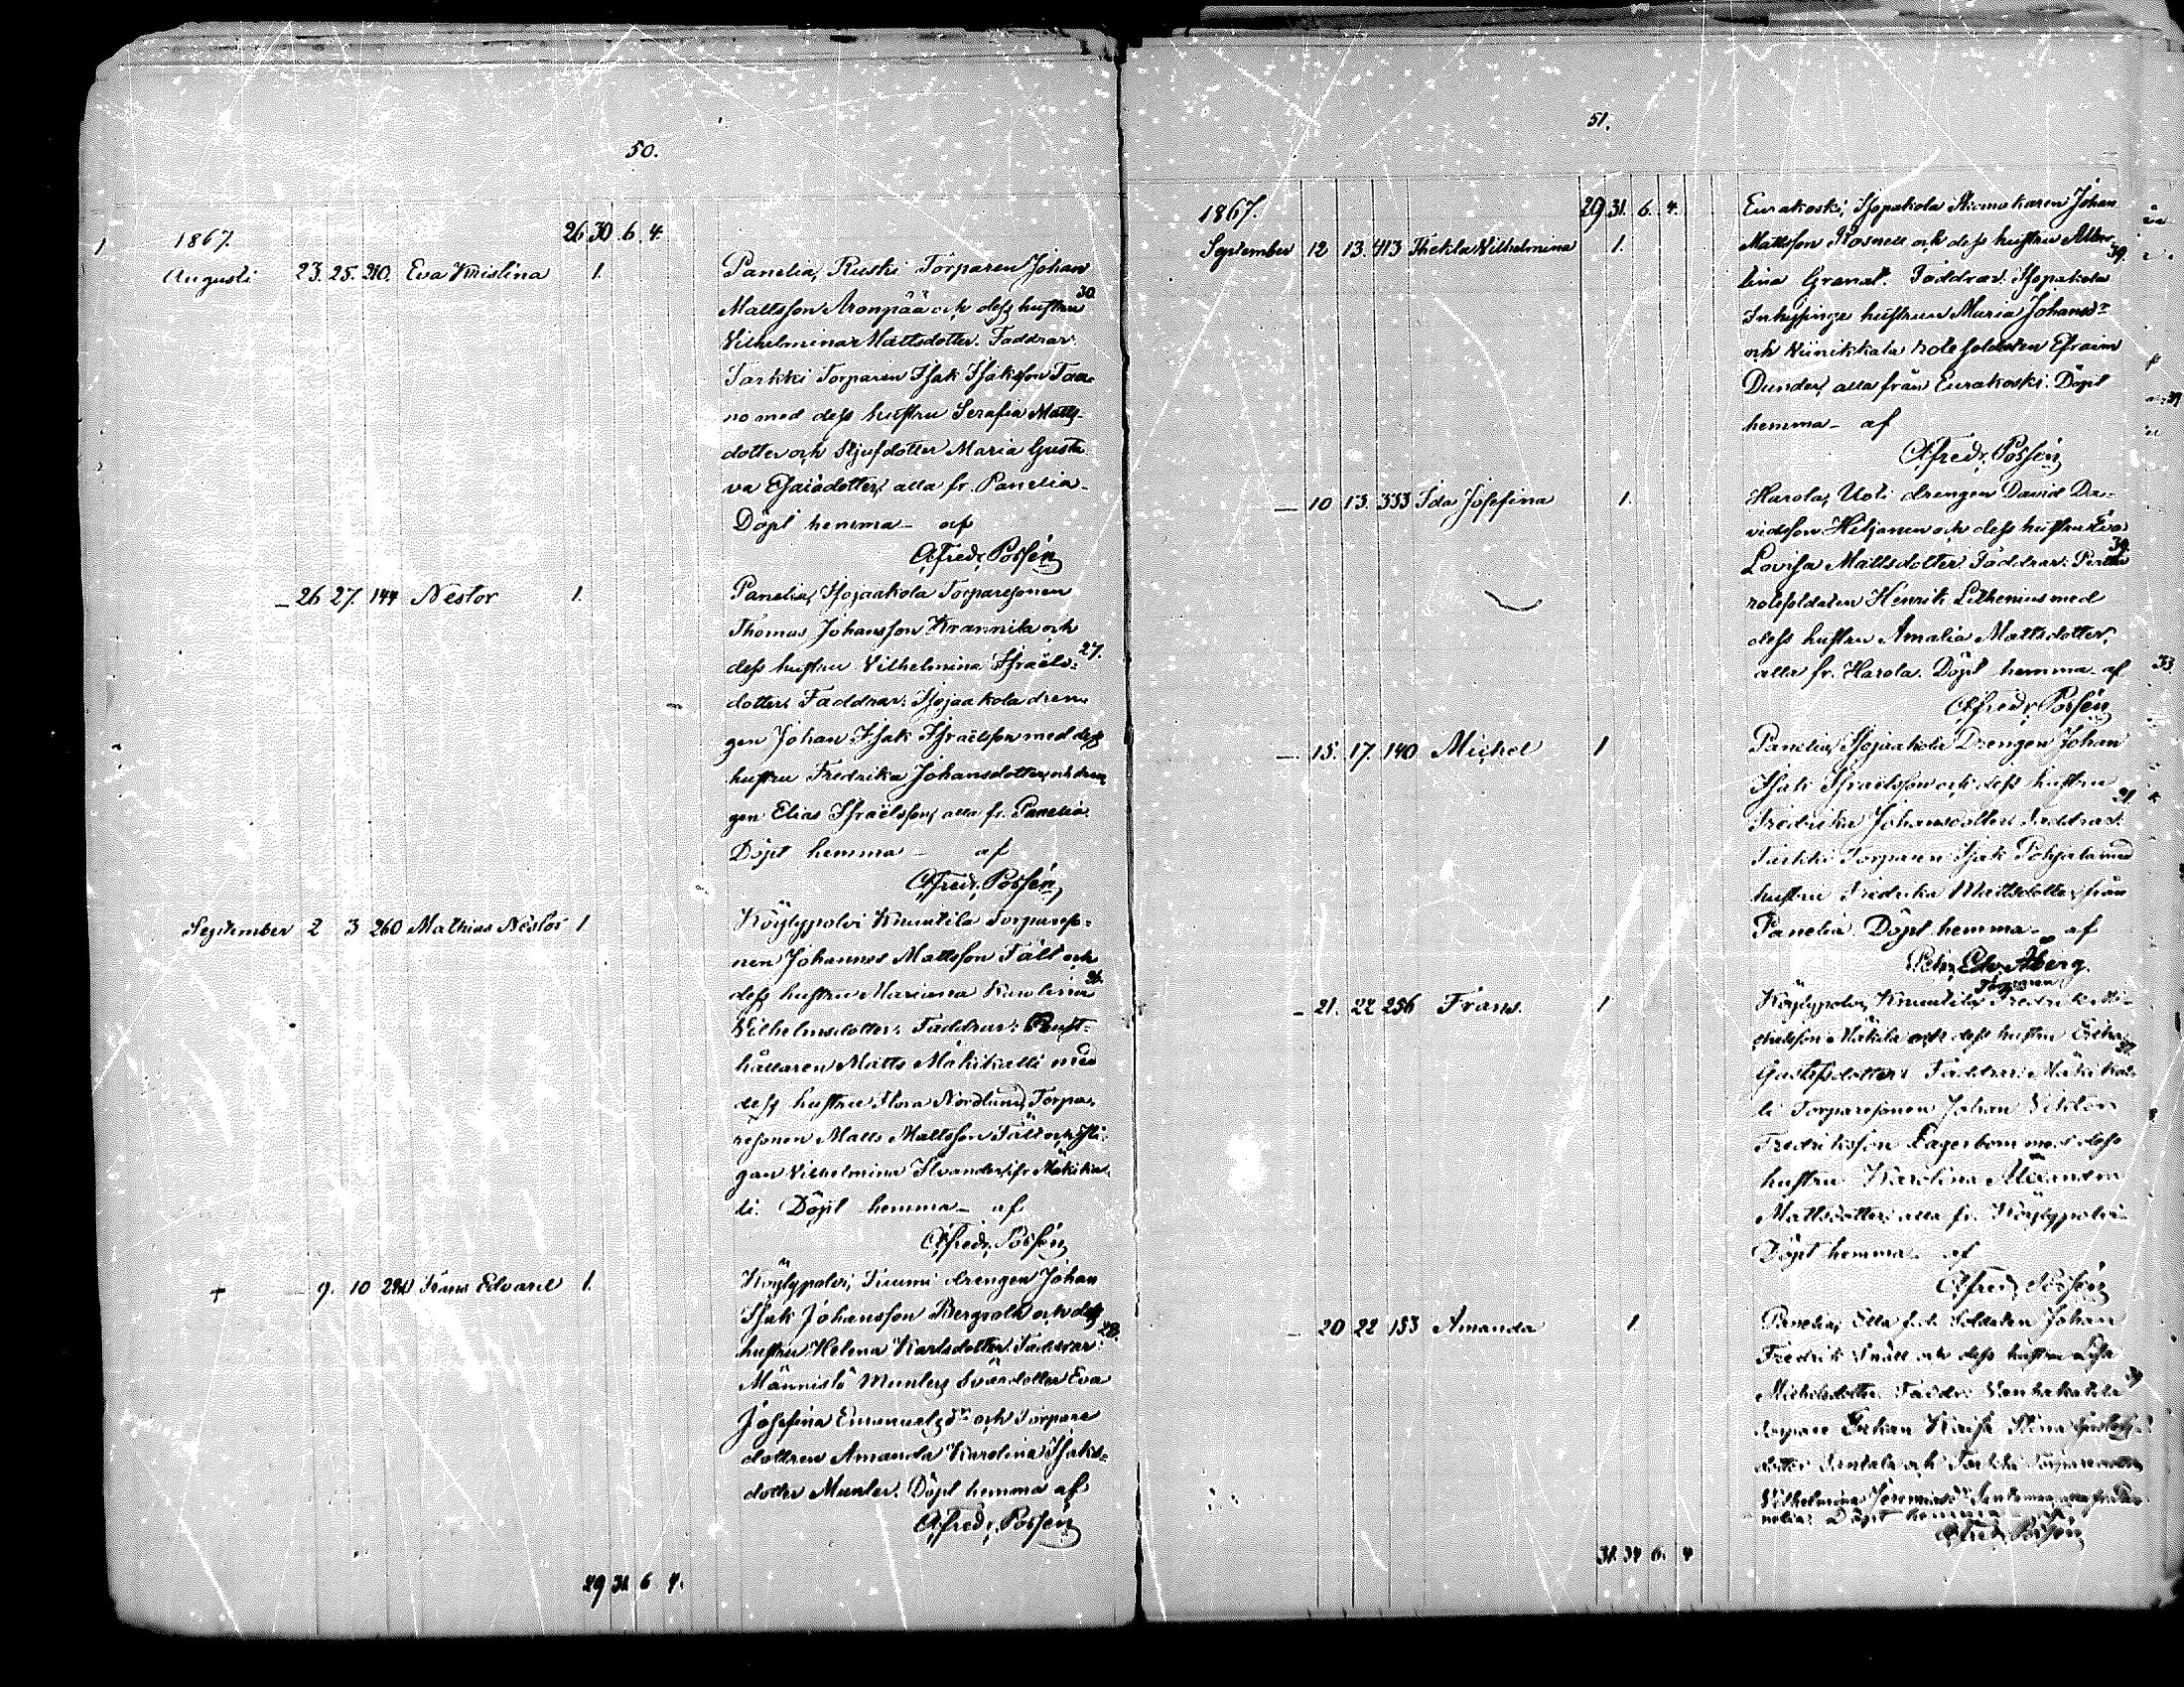 50.
1867.
26 30 6 4.
Augusti 23. 25. 210. Eva Kristina 1. Panelia, Ruski Torparen Johan
Mattsson Aronpää och dess hustru 30.
Vilhelmina Mattsdotter. Faddrar:
Tarkki Torparen Isak Isaksson Taa-
no med dess hustru Serafia Matts-
dotter och Stjufdotter Maria Gusta
va Esaiædotter, alla fr. Panelia.
Döpt hemma – af
Afredr. Possén
– 26 27. 144 Nestor 1. Panelia, Isojaakola Torparesonen
Thomas Johansson Krannila och
dess hustru Vilhelmina Israels- 27.
dotter. Faddrar: Isojaakola dren-
gen Johan Isak Israelsson med dess
hustru Fredrika Johansdotter och dren
gen Elias Israelsson, alla fr. Panelia.
Döpt hemma – af
Afredr. Possén
September 2 3 260 Mathias Nestor 1 Köylypolvi Knuutila Torpareso-
nen Johannes Mattsson Fält och
dess hustru Mariana Karolina
Vilhelmsdotter. Faddrar: Rust-
hållaren Matts Mäkikalli med
dess hustru Flora Nordlund, Torpa-
resonen Matts Mattsson Fält och Pi-
gan Vilhelmina Ilvander, fr. Mäkikal
li. Döpt hemma – af
Afredr. Possén
+ – 9. 10 Frans Edvard 1. Köylypolvi, Tuumi drengen Johan
Isak Johansson Bergroth och dess
hustru Helena Karlsdotter. Faddrar: 28.
Männistö Munter, Svärdotter Eva
Josefina Emanuelsdr och Torpare
dottren Amanda Karolina Isaks-
dotter Munter. Döpt hemma af
Afredr. Possén
29 31 6 4.
51.
1867.
29 31. 6. 4.
September 12 13. 413 Thekla Vilhelmina 1. Eurakoski, Isopakola Skomakaren Johan
Mattsson Rosnell och dess hustru Albe-
lina Granat. Faddrar: Isopakola 39.
Inhysinge hustrun Maria Johansdr
och Viinikkala rote soldaten Efraim
Dunder, alla från Eurakoski. Döpt
hemma – af
Afredr. Possén
– 10 13. 333 Ida Josefina 1. Harola, Uoti drengen David Da-
vidsson Heljanen och dess hustru Eva
Lovisa Mattsdotter. Faddrar:
rotesoldaten Henrik Lithenius med
dess hustru Amalia Mattsdotter,
alla fr. Harola. Döpt hemma af
Afredr. Possén
– 15. 17. 140 Michel 1 Panelia, Isojaakola Drengen Johan
Isak Israelsson och dess hustru
Fredrika Johansdotter. Faddrar:
Tarkki Torparen Isak Pohjala med
hustru Fredrika Mattsdotter, från
Panelia. Döpt hemma – af
Petr. Edv. Åberg.
– 21. 22 256 Frans. 1 Köylypolvi, Knuutila Torparen Fredrik Mi-
chelsson Mäkilä och dess hustru
Gustafsdotter. Faddrar: Mäkikal-
li Torparesonen Johan Viktor
Fredriksson Lagerbom med dess
hustru Karolina Alexandra
Mattsdotter, alla fr. Köylypolvi.
Döpt hemma – af
Afredr. Possén
– 20 22 153 Amanda 1. Panelia, Soldaten Johan
Fredrik Snäll och dess hustru
Michelsdotter. Faddr:
dotter och Tarkki
Vilhelmina
Döpt hemma af
Afredr. Possén
31 34 6. 4